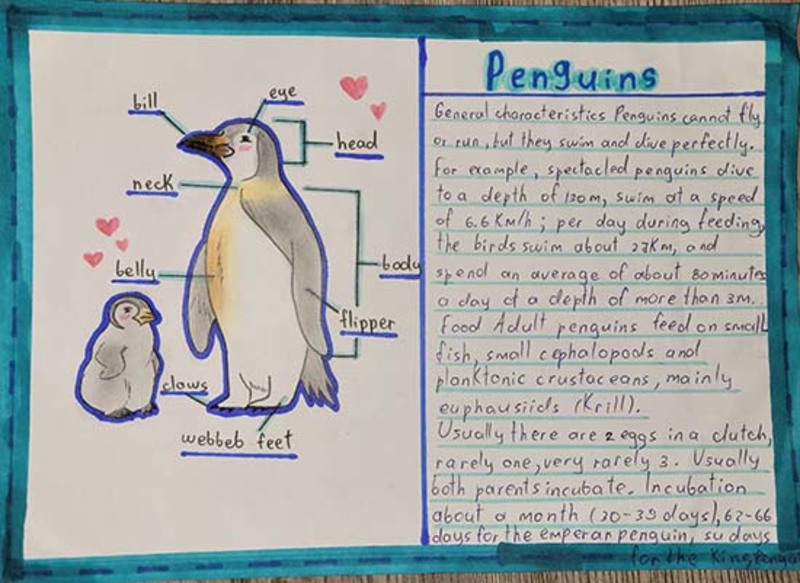 bill
eye
head
neck
belly
body
flipper
claws
webbeb feet
Penguins
General characteristics Penguins cannot fly
or run, but they swim and dive perfectly.
For example, spectacled penguins dive
to a depth of 130m, swim at a speed
of 6.6 Km/h; per day during feeding,
the birds swim about 27Km, and
spend an average of about 80 minutes
a day at a depth of more than 3m.
Food Adult penguins feed on small
fish, small cephalopods and
planktonic crustaceans, mainly
euphausiids (Krill).
Usually there are 2 eggs in a clutch,
rarely one, very rarely 3. Usually
both parents incubate. Incubation
about a month (30-39 days), 62-66
days for the emperan penguin, days
for the King